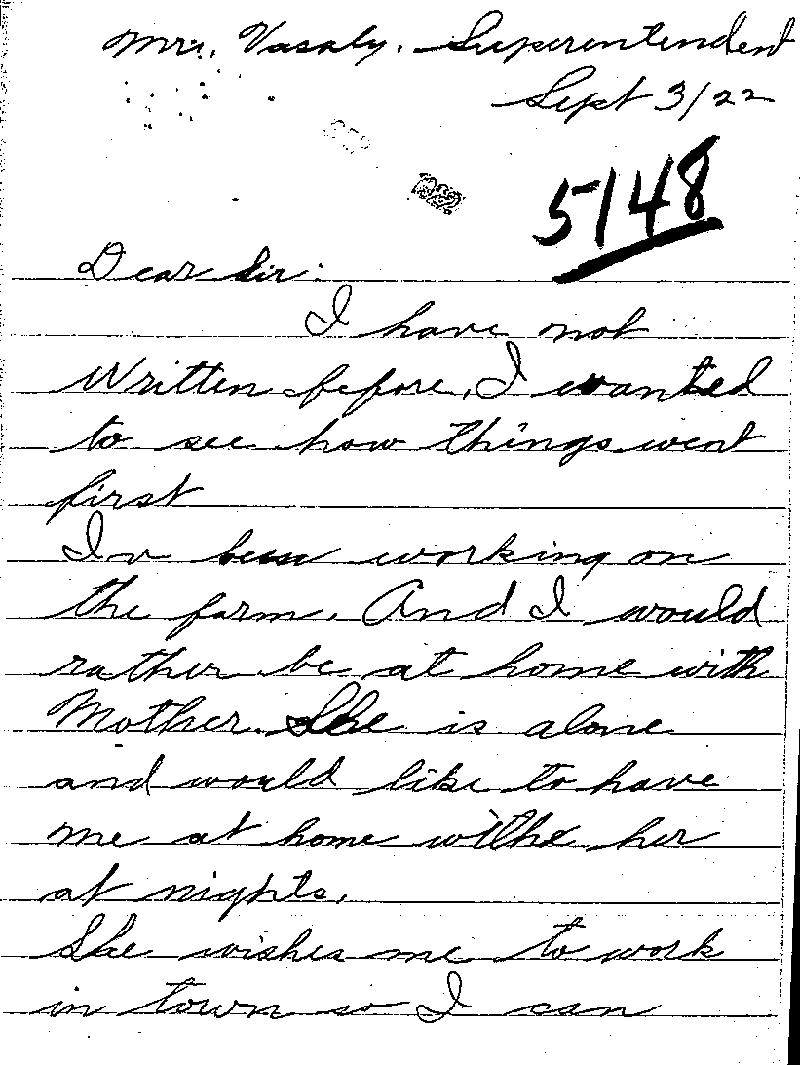 Mr. Vasaly. Superentendent
Sept 3/22
5148
Dear Sir:
I have not
Written before, I wanted
to see how things went
first
Iv been working on
the farm. And I would
rather be at home with
Mother. She is alone
and would like to have
me at home withe her
at nights.
She wishes me to work
in town so I can